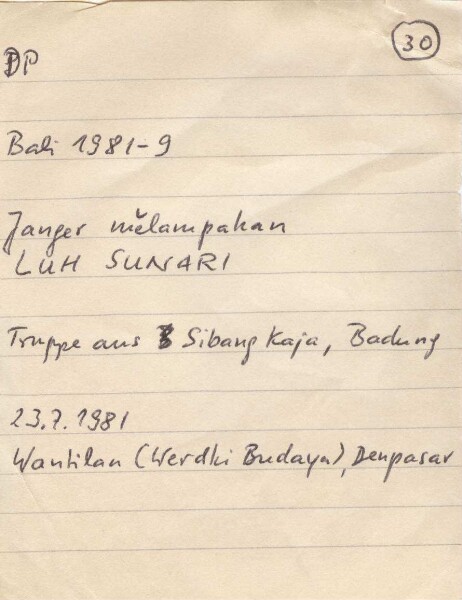 30
DP
Bali 1981-9
Janger mělampahan
LUH SUNARI
Truppe aus Sibang Kaja, Badung
23.7.1981
Wantilan (Werdhi Budaya), Denpasar